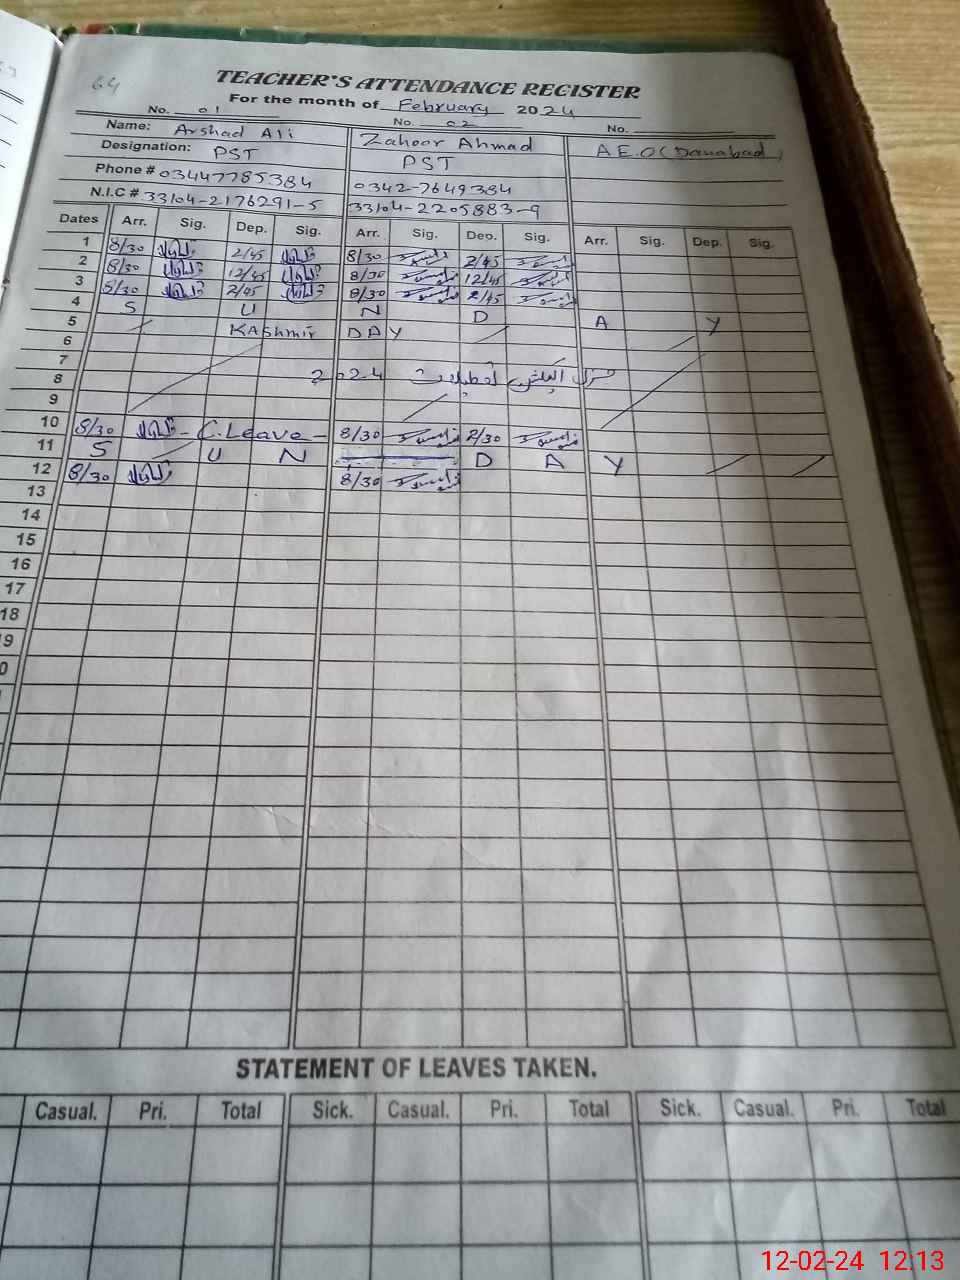 64
TEACHER'S ATTENDANCE REGISTER
For the month of February 2024
No. 01 No. 02 No.
Name: Arshad Ali Zahoor Ahmad A.E.O (Danabad)
Designation: PST PST
Phone # 03447785384 0342-7649384
N.I.C # 33104-2176291-5 33104-2205883-9
Dates Arr. Sig. Dep. Sig. Arr. Sig. Dep. Sig. Arr. Sig. Dep. Sig.
1 8/30 2/45 8/30 2/45
2 8/30 12/45 8/30 12/45
3 8/30 2/45 8/30 2/45
4 S U N D A Y
5 KAshmir DAY
6
7
8 جنرل الیکشن تعطیلات 2024
9
10 8/30 - C. Leave - 8/30 2/30
11 S U N D A Y
12 8/30 8/30
13
14
15
16
17
18
19
STATEMENT OF LEAVES TAKEN.
Casual. Pri. Total Sick. Casual. Pri. Total Sick. Casual. Pri. Total
12-02-24 12:13